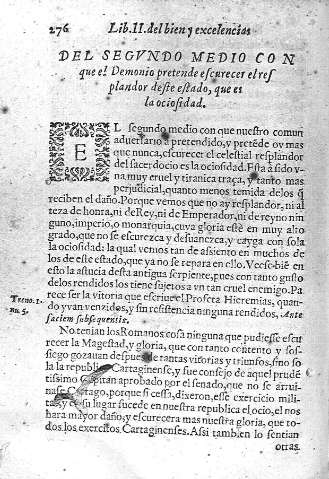 276 Lib. II. del bien y excelencias
DEL SEGVNDO MEDIO CON
que el Demonio pretende escurecer el res
plandor deste estado, que es
la ociosidad.
EL segundo medio con que nuestro comun
aduersario a pretendido, y pretēde oy mas
que nunca, escurecer el celestial resplandor
del sacerdocio es la ociosidad. Fue a sido v-
na muy cruel y titanica traça, y tanto mas
perjudicial, quanto menos temida de los q̄
reciben el daño. Porque vemos que no ay resplandor, ni al
teza de honra, ni de Rey, ni de Emperador, ni de reyno nin
guno, imperio, o monarquia, cuya gloria estè en muy alto
grado, que no se escurezca y desuanezca, y cayga con sola
la ociosidad: la qual vemos tan de assiento en muchos de
los de este estado, que ya no se repara en ello. Vese bië en
esto la astucia desta antigua serpiente, pues con tanto gusto
de los rendidos los tiene sujetos a vn tan cruel enemigo. Pa
rece ser la vitoria que escriue el Profeta Hieremias, quan-
do yvan venzidos, y sin resistencia ninguna rendidos, Ante
faciem subsequentis.
Treno. 1.
nu. 5.
No tenian los Romanos cosa ninguna que pudiesse escu
recer la Magestad, y gloria, que con tanto contento y sos-
siego gozauan despues de tantas vitorias y triumfos, sino so
la la republica Cartaginense, y fue consejo de aquel prudē
tissimo Capitan aprobado por el senado, que no se arrui-
nase Cartago, porque si cessa, dixeron, esse exercicio milita
y en su lugar sucede en nuestra republica el ocio, el nos
hara mayor daño, y escurecera mas nuestra gloria, que to-
dos los exercitos Cartaginenses. Assi tambien lo sentian
otras